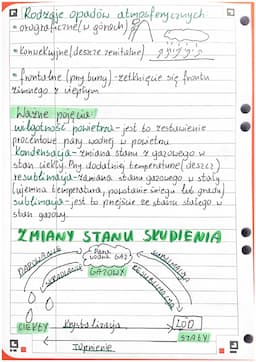 Rodzaje opadów atmosferycznych
• orograficzne (w górach)
• Konwekcyjne (deszcze zenitalne)
• frontalne (przy burzy) - zetknięcie się frontu
zimnego z ciepłym
Ważne pojęcia:
wilgotność powietrza - jest to zestawienie
procentowe pary wodnej w powietrzu
Kondensacja - zmiana stanu z gazowego w
stan ciekły. Przy dodatniej temperaturze (deszcz)
resublimacja - zamiana stanu gazowego w stały
(ujemna temperatura, powstanie śniegu lub gradu)
sublimacja - jest to przejście ze stanu stałego w
stan gazowy.
ZMIANY STANU SKUPIENIA
PAROWANIE
SKRAPLANIE
PARA
WODNA GAZ
GAZOWY
SUBLIMACJA
RESUBLIMACJA
CIEKŁY
Krystalizacja
LÓD
STAŁY